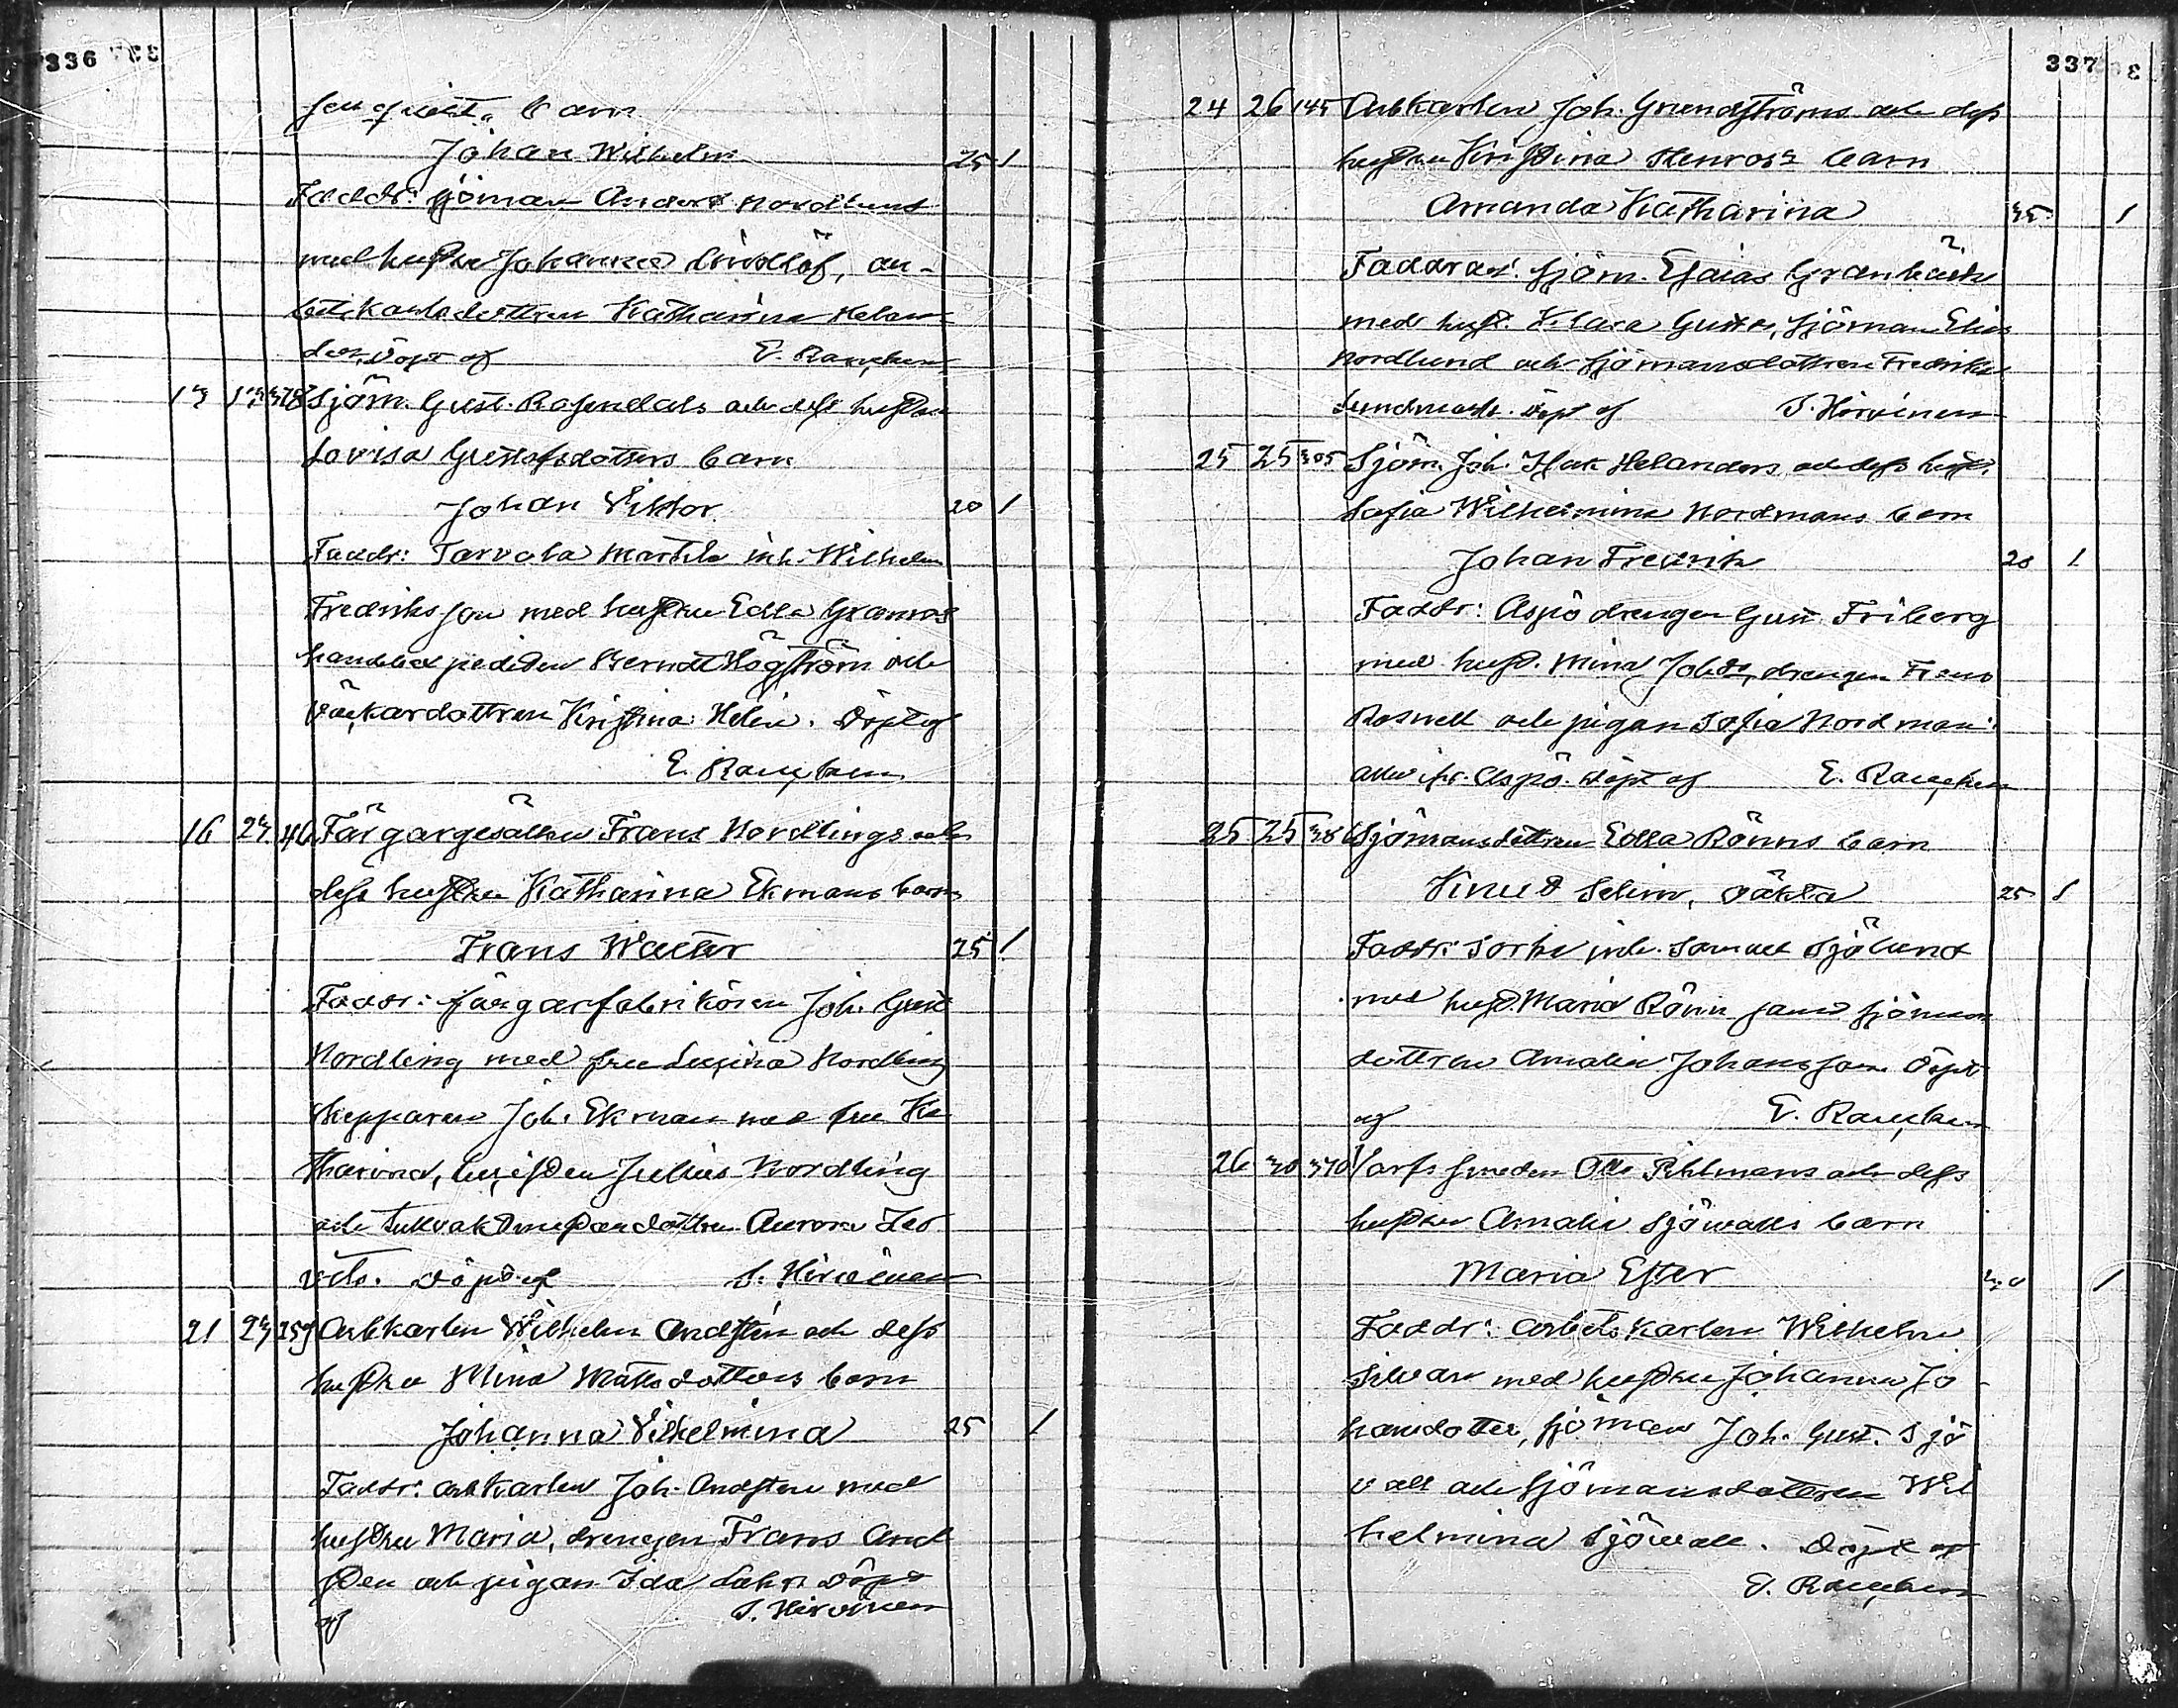 336
barn
Johan Wilhelm 25 1
Faddr: sjöman Anders Nordlund
med hustru Johanna Lindlöf, ar-
betskarlsdottren Katharina Helan-
der, Döpt af E. Rancken
13 13 378 Sjöm. Gust. Rosendals och dess hustru
Lovisa Gustafsdotters barn
Johan Viktor 20 1
Faddr: Tarvola Martila inh. Wilhelm
Fredriksson med hustru Edla Granros
handelsexpediten Berndt Högström och
väktardottren Kristina Helin. Döpt af
E. Rancken
16 23 46 Färgargesällen Frans Nordlings och
dess hustru Katharina Ekmans barn
Frans Walter 25 1
Faddr: färgarfabrikören Joh. Gust
Nordling med fru Lusina Nordling
skepparen Joh. Ekman med fru Ka
tharina, Julius Nordling
och Aurora Leo
Döpt af S. Hirvinen
21 23 259 Arbkarlen Wilhelm Andstén och dess
hustru Mina Mattsdotters barn
Johanna Vilhelmina 25 1
Faddr: arbkarlen Joh. Andsten med
hustru Maria, drengen Frans And
sten och pigan Ida Lahti Döpt
af S. Hirvinen
337
24 26 145 Arbkarlen Joh. Grundströms och dess
hustru Kristina Stenros's barn
Amanda Katharina 35 1
Faddrar: sjöm. Esaias Granbäck
med hust. Klara Gustava, sjöman Elias
Nordlund och sjömansdottren Fredrika
Sundmark. Döpt af S. Hirvinen
25 25 305 Sjöm. Joh. Isak Helanders och dess hust.
Sofia Wilhelmina Nordmans barn
Johan Fredrik 28 1
Faddr: Aspö drengen Gust. Friberg
med hust. Mina Johdr, drengen Frans
Rosnell och pigan Sofia Nordman
alla ifr. Aspö. Döpt af E. Rancken
25 25 386 Sjömansdottren Edla Rönns barn
Knut Selim, oäkta 25 1
Faddr: Sorko inh. Samuel Sjölund
med hust. Maria Rönn samt sjömans
dottren Amalia Johansson. Döpt
af E. Rancken
26 30 370 Varfssmeden Otto Pihlmans och dess
hustru Amalia Sjöwalls barn
Maria Ester 30 1
Faddr: arbetskarlen Wilhelm
Silvan med hustru Johanna Jo
hansdotter, sjöman Joh. Gust. Sjö
vall och sjömansdottren Wil
helmina Sjöwall. Döpt af
E. Rancken